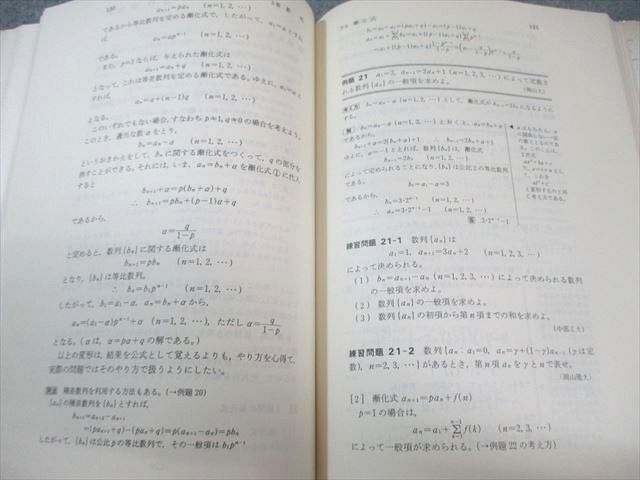 130
であるから等比数列を定める漸化式で、したがって、a₁=aとすれば
aₙ=apⁿ⁻¹ (n=1, 2, …)
である。
また、p=1ならば、与えられた漸化式は
aₙ₊₁=aₙ+q (n=1, 2, …)
となって、これは等差数列を定める漸化式である。ゆえに、a₁=aとすれば
aₙ=a+(n-1)q (n=1, 2, …)
となる。
このいずれでもない場合、すなわち p≠1, q≠0 の場合を考えよう。
このとき、適当な数αをとり、
bₙ=aₙ-α (n=1, 2, …)
というおきかえをして、bₙに関する漸化式をつくって、qの部分を
消すことができる。それには、いま、aₙ=bₙ+αを漸化式①に代入
すると
bₙ₊₁+α=p(bₙ+α)+q
∴ bₙ₊₁=pbₙ+(p-1)α+q
であるから、
α=q/(1-p)
と定めると、数列{bₙ}に関する漸化式は
bₙ₊₁=pbₙ (n=1, 2, …)
となり、{bₙ}は等比数列。
∴ bₙ=b₁pⁿ⁻¹ (n=1, 2, …)
したがって、b₁=a₁-α, aₙ=bₙ+αから、
aₙ=(a₁-α)pⁿ⁻¹+α (n=1, 2, …), ただしα=q/(1-p)
となる。(αは、α=pα+qの解である。)
以上の変形は、結果を公式として覚えるよりも、やり方を心得て、
実際の問題ではそのやり方で扱うようにしたい。
階差数列を利用する方法もある。(→例題20)
{aₙ}の階差数列を{bₙ}とすれば、
bₙ₊₁=aₙ₊₂-aₙ₊₁
=(paₙ₊₁+q)-(paₙ+q)=p(aₙ₊₁-aₙ)=pbₙ
したがって、{bₙ}は公比pの等比数列で、その一般項はb₁pⁿ⁻¹
漸化式
131
例題 21 a₁=2, aₙ₊₁=2aₙ+1 (n=1, 2, 3, …)によって定義さ
れる数列{aₙ}の一般項を求めよ。
(岡山大)
考え方 bₙ=aₙ-α (n=1, 2, 3, …)として、漸化式がbₙ₊₁=2bₙになるようにする。
解 bₙ=aₙ-α (n=1, 2, 3, …)とおくと、aₙ=bₙ+α
であるから、
bₙ₊₁+α=2(bₙ+α)+1 ∴ bₙ₊₁=2bₙ+α+1
ゆえに、α=-1とすれば、数列{bₙ}は、漸化式
bₙ₊₁=2bₙ (n=1, 2, 3, …)
によって定められることになり、{bₙ}は公比2の等比数列
である。
b₁=a₁-α=3
であるから、
bₙ=3·2ⁿ⁻¹ (n=1, 2, 3, …)
∴ aₙ=3·2ⁿ⁻¹-1 (n=1, 2, 3, …)
答 3·2ⁿ⁻¹-1
練習問題 21-1 数列{aₙ}は
a₁=1, aₙ₊₁=3aₙ+2 (n=1, 2, 3, …)
によって決められる。
(1) bₙ=aₙ₊₁-aₙ (n=1, 2, 3, …)によって決められる数列
の一般項を求めよ。
(2) 数列{aₙ}の一般項を求めよ。
(3) 数列{aₙ}の初項から第n項までの和を求めよ。
(中部工大)
練習問題 21-2 数列{aₙ: a₁=0, aₙ=γ+(1-γ)aₙ₋₁ (γは定
数), n=2, 3, …}があるとき、第n項aₙをγとnで表せ。
(岡山理大)
[2] 漸化式 aₙ₊₁=paₙ+f(n)
p=1の場合は、
aₙ=a₁+Σₖ₌₁ⁿ⁻¹f(k) (n=2, 3, …)
によって一般項が求められる。(→例題22の考え方)